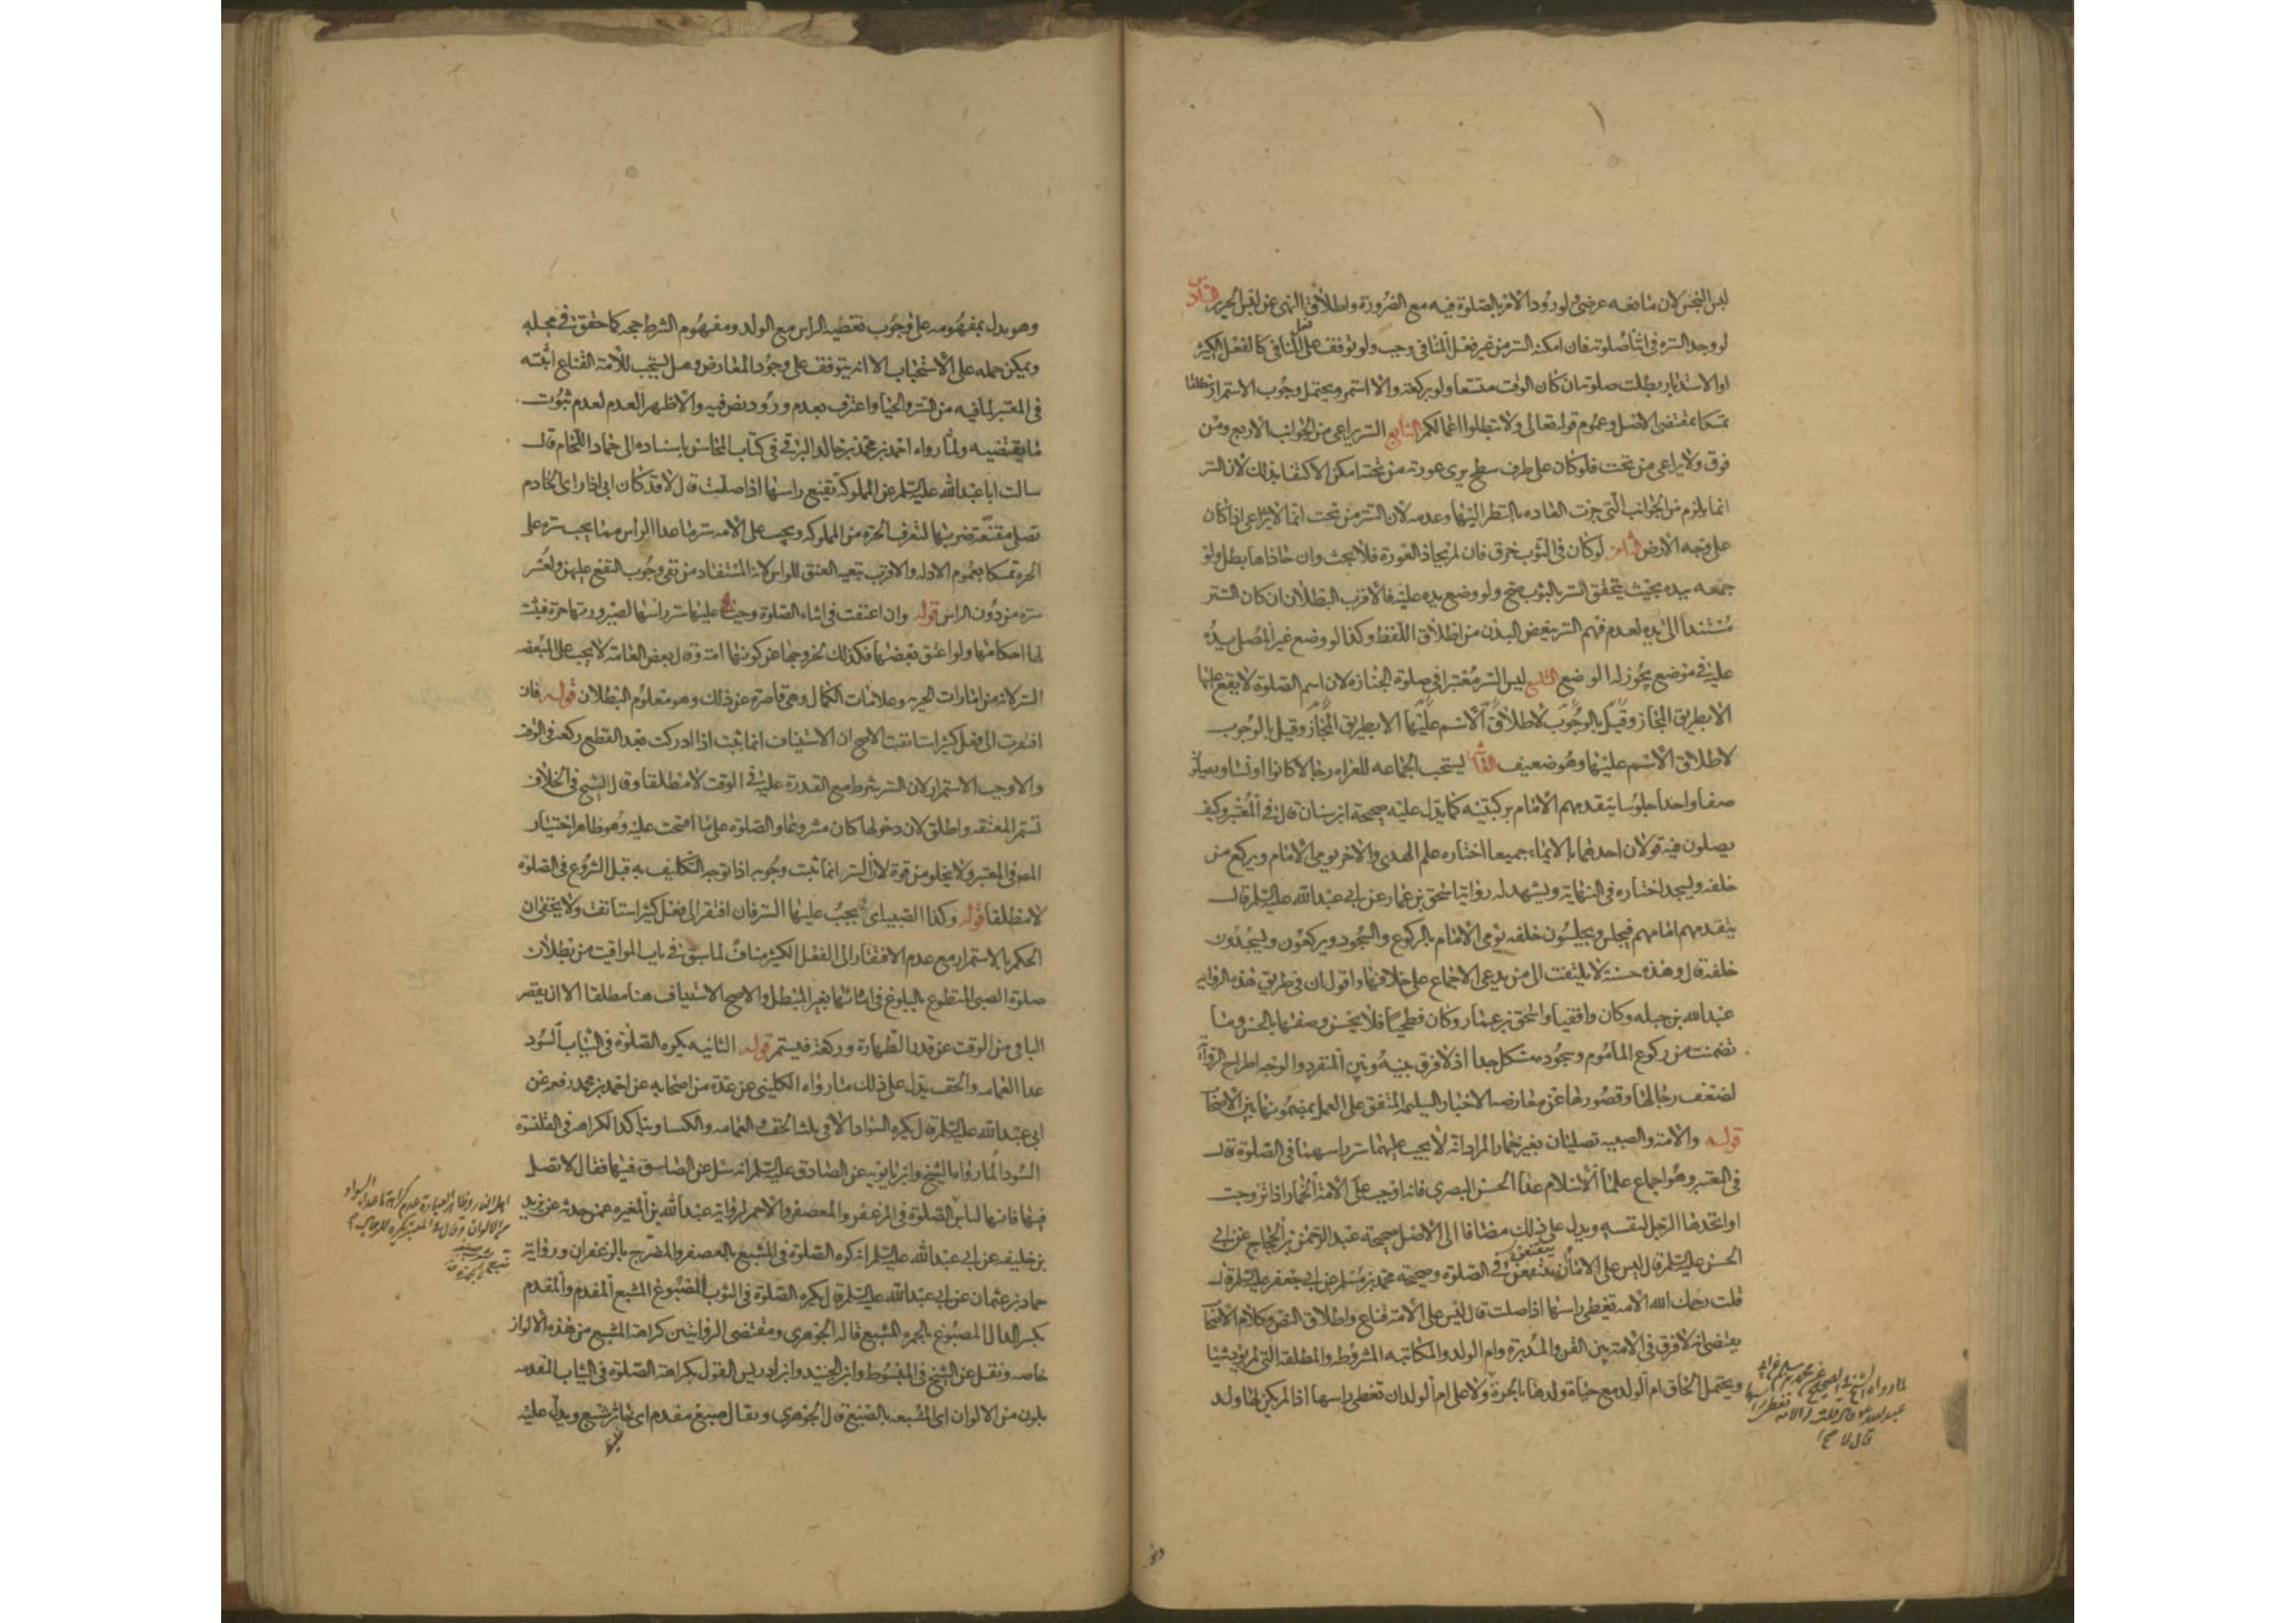 لبس النجس لان مانعه عرضي ولورود الامر بالصلوة فيه مع الضرورة واطلاق النهي عن لبس الحرير السادس
لو وجد الستره في اثناء صلوته فان امكنه الستر من غير فعل المنافي وجب ولو توقف على فعل المنافي كالفعل الكثير
او الاستدبار بطلت صلوته ان كان الوقت متسعا ولو بركعة والا استمر ويحتمل وجوب الاستمرار مطلقا
تمسكا بمقتضى الاصل وعموم قوله تعالى ولا تبطلوا اعمالكم السابع الستر يراعى من الجوانب الاربع ومن
فوق ولا يراعى من تحت فلو كان على طرف سطح يرى عورته من تحته امكن الاكتفاء بذلك لان الستر
انما يلزم من الجوانب التي جرت العاده بالنظر اليها وعدمه لان الستر من تحت انما لا يراعى اذا كان
على وجه الارض الثامن لو كان في الثوب خرق فان لم يحاذ العورة فلا بحث وان حاذاها بطل ولو
جمعه بيده بحيث يتحقق الستر بالثوب صح ولو وضع يده عليه فالاقرب البطلان ان كان الستر
مستندا الى يده لعدم فهم الستر ببعض البدن من اطلاق اللفظ وكذا لو وضع غير المصلي يده
عليه في موضع يجوز له الوضع التاسع ليس الستر معتبرا في صلوة الجنازه لان اسم الصلوة لا يقع عليها
الا بطريق المجاز وقيل بالوجوب لاطلاق الاسم عليها الا بطريق المجاز وقيل بالوجوب
لاطلاق الاسم عليها وهو ضعيف العاشر يستحب الجماعه للعراه رجالا كانوا او نساء ويصلون
صفا واحدا جلوسا يتقدمهم الامام بركبتيه كما يدل عليه صحيحة ابن سنان قال في المعتبر وكيف
يصلون فيه قولان احدهما بالايماء جميعا اختاره علم الهدى والاخر يومي الامام ويركع من
خلفه ويسجد اختاره في النهاية ويشهد له رواية اسحق بن عمار عن ابي عبد الله عليه السلم قال
يتقدمهم امامهم فيجلس ويجلسون خلفه يومي الامام بالركوع والسجود ويركعون ويسجدون
خلفه قال وهذه حسنة لا يلتفت الى من يدعي الاجماع على خلافها واقول ان في طريق هذه الروايه
عبد الله بن جبله وكان واقفيا واسحق بن عمار وكان فطحيا فلا يحسن وصفها بالحسن وما
تضمنت من ركوع الماموم وسجوده مشكل جدا اذ لا فرق بينه وبين المنفرد والوجه اطراح الرواية
لضعف رجالها وقصورها عن معارضه الاخبار السليمه المتفق على العمل بمضمونها بين الاصحاب
قوله والامة والصبيه تصليان بغير خمار المراد انه لا يجب عليهما ستر راسهما في الصلوة قال
في المعتبر وهو اجماع علماء الاسلام عدا الحسن البصري فانه اوجب على الامة الخمار اذا تزوجت
او اتخذها الرجل لنفسه ويدل على ذلك مضافا الى الاصل صحيحة عبد الرحمن بن الحجاج عن ابي
الحسن عليه السلم قال ليس على الاماء ان يتقنعن في الصلوة وصحيحة محمد بن مسلم عن ابي جعفر عليه السلم قال
قلت رحمك الله الامه تغطي راسها اذا صلت قال ليس على الامة قناع واطلاق النص وكلام الاصحاب
يقتضي انه لا فرق في الامة بين القن والمدبرة وام الولد والمكاتبه المشروطه والمطلقه التي لم تؤد شيئا
ويحتمل الحاق ام الولد مع حياة ولدها بالحرة ولا على ام الولد ان تغطي راسها اذا لم يكن لها ولد
لما رواه الشيخ في الصحيح عن محمد بن مسلم عن ابي
عبد الله ع قال قلت له الامة تغطي راسها
قال لا
وهو يدل بمفهومه على وجوب تغطيه الراس مع الولد ومفهوم الشرط حجه كما حقق في محله
ويمكن حمله على الاستحباب الا انه يتوقف على وجود المعارض وهل يستحب للامة القناع اثبته
في المعتبر لما فيه من الستر والحياء واعترف بعدم ورود نص فيه والاظهر العدم لعدم ثبوت
ما يقتضيه ولما رواه احمد بن محمد بن خالد البرقي في كتاب المحاسن باسناده الى حماد اللحام قال
سالت ابا عبد الله عليه السلم عن المملوكة تقنع راسها اذا صلت قال لا قد كان ابي اذا راى الخادم
تصلي مقنعة ضربها لتعرف الحرة من المملوكه ويجب على الامه ستر ما عدا الراس مما يجب ستره على
الحرة تمسكا بعموم الادله والاقرب تبعيه العنق للراس لانه المستفاد من نفي وجوب التقنع عليهن ولعسر
ستره من دون الراس قوله وان اعتقت في اثناء الصلوة وجب عليها ستر راسها لصيرورتها حرة فيثبت
لها احكامها ولو اعتق بعضها فكذلك لخروجها عن كونها امة وقال بعض العامة لا يجب على المبعضه
الستر لانه من امارات الحريه وعلامات الكمال وهي قاصرة عن ذلك وهو معلوم البطلان قوله فان
افتقرت الى فعل كثير استانفت الاصح ان الاستيناف انما يثبت اذا ادركت بعد القطع ركعة في الوقت
والا وجب الاستمرار لان الستر شرط مع القدرة عليه في الوقت لا مطلقا وقال الشيخ في الخلاف
تستمر المعتقه واطلق لان دخولها كان مشروعا والصلوة على ما افتتحت عليه وهو ظاهر اختيار
المص في المعتبر ولا يخلو من قوة لان الستر انما ثبت وجوبه اذا توجه التكليف به قبل الشروع في الصلوة
لا مطلقا قوله وكذا الصبيه اي يجب عليها الستر فان افتقر الى فعل كثير استانفت ولا يخفى ان
الحكم بالاستمرار مع عدم الافتقار الى الفعل الكثير مناف لما سبق في باب المواقيت من بطلان
صلوة الصبي المتطوع بالبلوغ في اثنائها بغير المبطل والاصح الاستيناف هنا مطلقا الا ان يقصر
الباقي من الوقت عن قدر الطهارة وركعة فيستمر قوله الثانيه يكره الصلوة في الثياب السود
عدا العمامه والخف يدل على ذلك ما رواه الكليني عن عدة من اصحابه عن احمد بن محمد رفعه عن
ابي عبد الله عليه السلم قال يكره السواد الا في ثلثه الخف والعمامه والكساء ويتاكد الكراهه في القلنسوة
السوداء لما رواه الشيخ وابن بابويه عن الصادق عليه السلم انه سئل عن الصلوة فيها فقال لا تصل
فيها فانها لباس اهل النار والصلوة في المزعفر والمعصفر والاحمر لرواية عبد الله بن المغيره عمن حدثه عن يزيد
بن خليفه عن ابي عبد الله عليه السلم انه كره الصلوة في المشبع بالعصفر والمضرج بالزعفران ورواية
حماد بن عثمان عن ابي عبد الله عليه السلم قال يكره الصلوة في الثوب المصبوغ المشبع المفدم والمفدم
بكسر الدال المصبوغ بالحمره المشبع قاله الجوهري ومقتضى الروايتين كراهة المشبع من هذه الالوان
خاصه ونقل عن الشيخ في المبسوط وابن الجنيد وابن ادريس القول بكراهة الصلوة في الثياب المفدمه
بلون من الالوان اي المشبعه بالصبغ قال الجوهري ويقال صبغ مفدم اي خاثر مشبع ويدل عليه
اهل النار وظاهر العبارة عدم كراهة ما عدا السواد
من الالوان وقال في المعتبر يكره للرجال